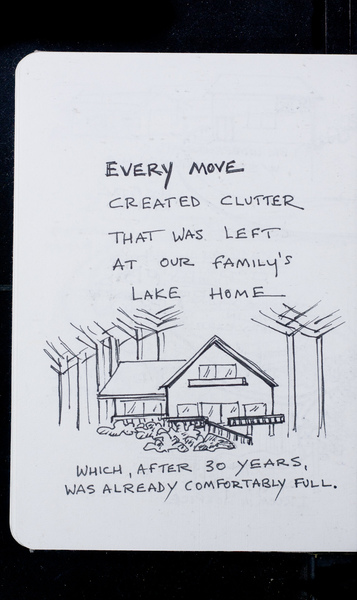 EVERY MOVE
CREATED CLUTTER
THAT WAS LEFT
AT OUR FAMILY'S
LAKE HOME
WHICH, AFTER 30 YEARS,
WAS ALREADY COMFORTABLY FULL.